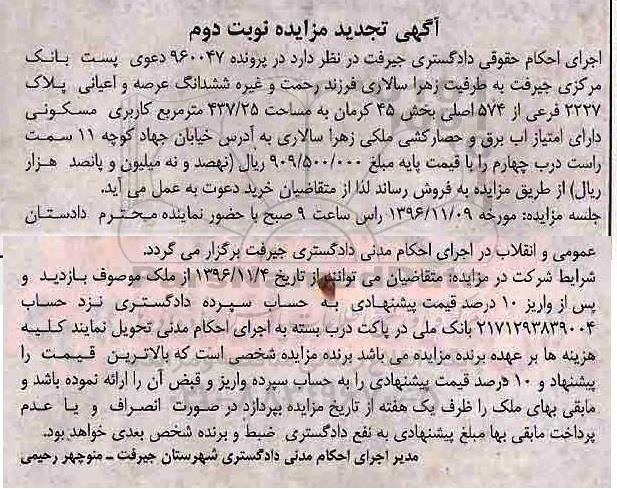 آگهی تجدید مزایده نوبت دوم
اجرای احکام حقوقی دادگستری جیرفت در نظر دارد در پرونده ۹۶۰۰۴۷ دعوی پست بانک
مرکزی جیرفت به طرفیت زهرا سالاری فرزند رحمت و غیره ششدانگ عرصه و اعیانی پلاک
۲۲۳۷ فرعی از ۵۷۴ اصلی بخش ۴۵ کرمان به مساحت ۴۳۷/۲۵ مترمربع کاربری مسکونی
دارای امتیاز اب برق و حصارکشی ملکی زهرا سالاری به آدرس خیابان جهاد کوچه ۱۱ سمت
راست درب چهارم را با قیمت پایه مبلغ ۹۰۹/۵۰۰/۰۰۰ ریال (نهصد و نه میلیون و پانصد هزار
ریال) از طریق مزایده به فروش رساند لذا از متقاضیان خرید دعوت به عمل می آید.
جلسه مزایده: مورخه ۱۳۹۶/۱۱/۰۹ راس ساعت ۹ صبح با حضور نماینده محترم دادستان
عمومی و انقلاب در اجرای احکام مدنی دادگستری جیرفت برگزار می گردد.
شرایط شرکت در مزایده: متقاضیان می توانند از تاریخ ۱۳۹۶/۱۱/۴ از ملک موصوف بازدید و
پس از واریز ۱۰ درصد قیمت پیشنهادی به حساب سپرده دادگستری نزد حساب
۲۱۷۱۲۹۳۸۳۹۰۰۴ بانک ملی در پاکت درب بسته به اجرای احکام مدنی تحویل نمایند کلیه
هزینه ها بر عهده برنده مزایده می باشد برنده مزایده شخصی است که بالاترین قیمت را
پیشنهاد و ۱۰ درصد قیمت پیشنهادی را به حساب سپرده واریز و قبض آن را ارائه نموده باشد و
مابقی بهای ملک را ظرف یک هفته از تاریخ مزایده بپردازد در صورت انصراف و یا عدم
پرداخت مابقی بها مبلغ پیشنهادی به نفع دادگستری ضبط و برنده شخص بعدی خواهد بود.
مدیر اجرای احکام مدنی دادگستری شهرستان جیرفت ـ منوچهر رحیمی